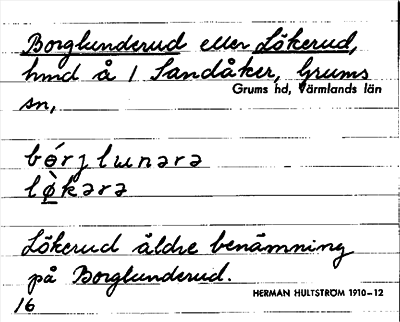 Borglunderud eller Lökerud,
hmd å 1 Sandåker, Grums
Grums hd, Värmlands län
sn,
bórglɯnərə
lø̀kərə
Lökerud äldre benämning
på Borglunderud.
HERMAN HULTSTRÖM 1910–12
16